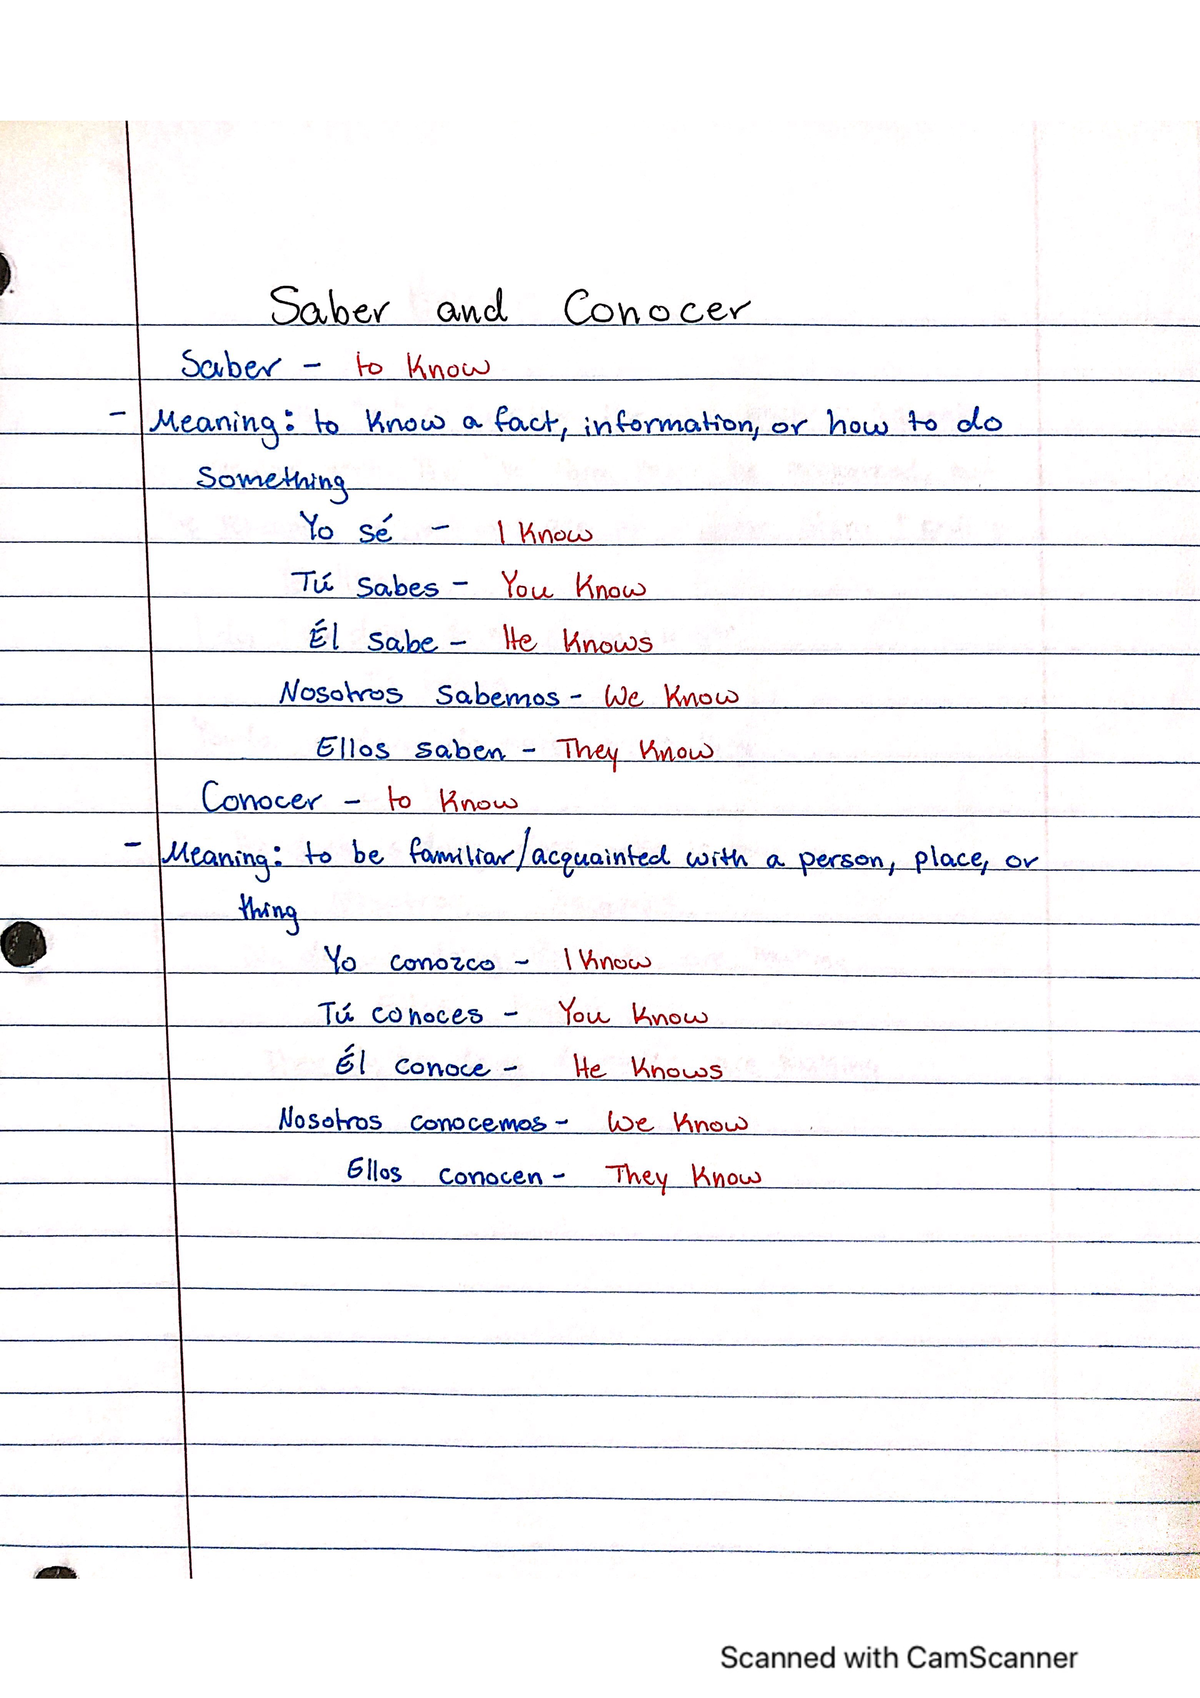 Saber and Conocer
Saber - to know
- Meaning: to know a fact, information, or how to do
something
Yo sé - I know
Tú sabes - You know
Él sabe - He knows
Nosotros sabemos - We know
Ellos saben - They know
Conocer - to know
- Meaning: to be familiar/acquainted with a person, place, or
thing
Yo conozco - I know
Tú conoces - You know
Él conoce - He knows
Nosotros conocemos - We know
Ellos conocen - They know
Scanned with CamScanner